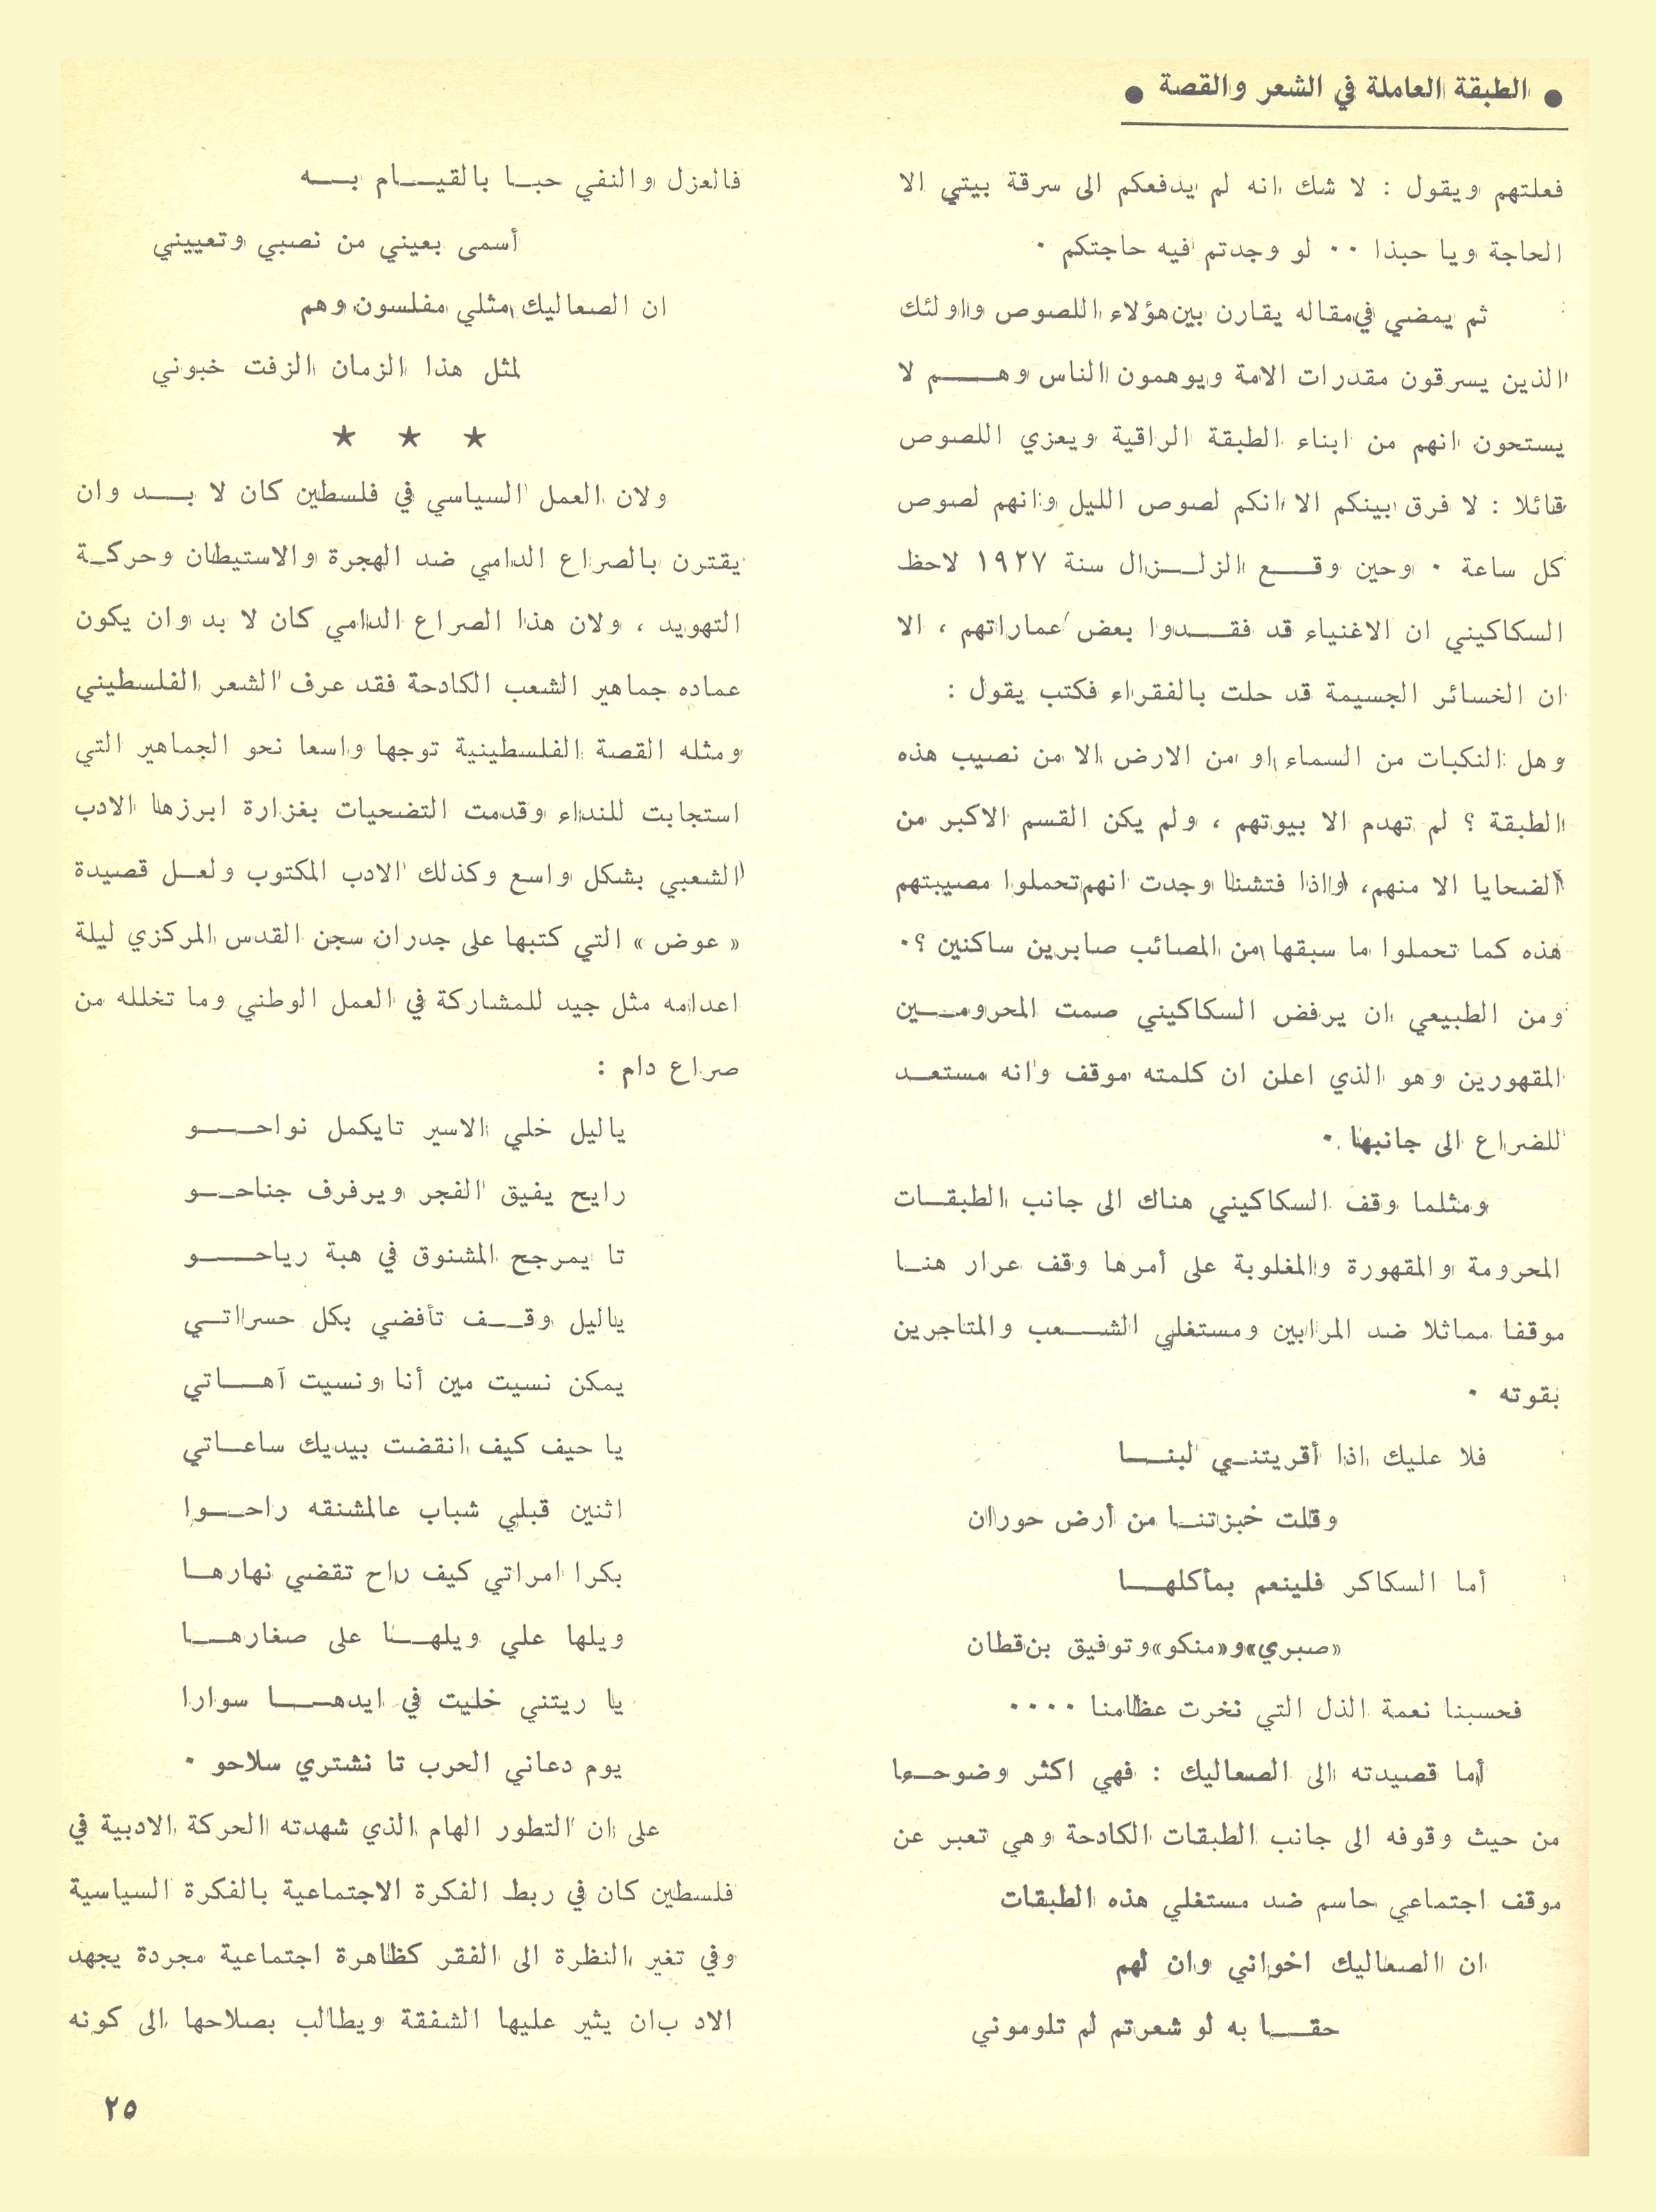 ● الطبقة العاملة في الشعر والقصة ●
فعلتهم ويقول : لا شك انه لم يدفعكم الى سرقة بيتي الا
الحاجة ويا حبذا ٠٠ لو وجدتم فيه حاجتكم ٠
ثم يمضي في مقاله يقارن بين هؤلاء اللصوص واولئك
الذين يسرقون مقدرات الامة ويوهمون الناس وهم لا
يستحون انهم من ابناء الطبقة الراقية ويعزي اللصوص
قائلا : لا فرق بينكم الا انكم لصوص الليل وانهم لصوص
كل ساعة ٠ وحين وقع الزلزال سنة ١٩٢٧ لاحظ
السكاكيني ان الاغنياء قد فقدوا بعض عماراتهم ، الا
ان الخسائر الجسيمة قد حلت بالفقراء فكتب يقول :
وهل النكبات من السماء او من الارض الا من نصيب هذه
الطبقة ؟ لم تهدم الا بيوتهم ، ولم يكن القسم الاكبر من
الضحايا الا منهم، واذا فتشنا وجدت انهم تحملوا مصيبتهم
هذه كما تحملوا ما سبقها من المصائب صابرين ساكنين ؟٠
ومن الطبيعي ان يرفض السكاكيني صمت المحرومين
المقهورين وهو الذي اعلن ان كلمته موقف وانه مستعد
للضراع الى جانبها ٠
ومثلما وقف السكاكيني هناك الى جانب الطبقات
المحرومة والمقهورة والمغلوبة على أمرها وقف عرار هنا
موقفا مماثلا ضد المرابين ومستغلي الشعب والمتاجرين
بقوته ٠
فلا عليك اذا أقريتني لبنا
وقلت خبزتنا من أرض حوران
أما السكاكر فلينعم بمأكلها
«صبري» و«منكو» وتوفيق بن قطان
فحسبنا نعمة الذل التي نخرت عظامنا ٠٠٠٠
أما قصيدته الى الصعاليك : فهي اكثر وضوحا
من حيث وقوفه الى جانب الطبقات الكادحة وهي تعبر عن
موقف اجتماعي حاسم ضد مستغلي هذه الطبقات
ان الصعاليك اخواني وان لهم
حقا به لو شعرتم لم تلوموني
فالعزل والنفي حبا بالقيام به
أسمى بعيني من نصبي وتعييني
ان الصعاليك مثلي مفلسون وهم
لمثل هذا الزمان الزفت خبوني
★ ★ ★
ولان العمل السياسي في فلسطين كان لا بد وان
يقترن بالصراع الدامي ضد الهجرة والاستيطان وحركة
التهويد ، ولان هذا الصراع الدامي كان لا بد وان يكون
عماده جماهير الشعب الكادحة فقد عرف الشعر الفلسطيني
ومثله القصة الفلسطينية توجها واسعا نحو الجماهير التي
استجابت للنداء وقدمت التضحيات بغزارة ابرزها الادب
الشعبي بشكل واسع وكذلك الادب المكتوب ولعل قصيدة
« عوض » التي كتبها على جدران سجن القدس المركزي ليلة
اعدامه مثل جيد للمشاركة في العمل الوطني وما تخلله من
صراع دام :
ياليل خلي الاسير تايكمل نواحو
رايح يفيق الفجر ويرفرف جناحو
تا يمرجح المشنوق في هبة رياحو
ياليل وقف تأفضي بكل حسراتي
يمكن نسيت مين أنا ونسيت آهاتي
يا حيف كيف انقضت بيديك ساعاتي
اثنين قبلي شباب عالمشنقه راحوا
بكرا امراتي كيف راح تقضي نهارها
ويلها علي ويلها على صغارها
يا ريتني خليت في ايدها سوارا
يوم دعاني الحرب تا نشتري سلاحو ٠
على ان التطور الهام الذي شهدته الحركة الادبية في
فلسطين كان في ربط الفكرة الاجتماعية بالفكرة السياسية
وفي تغير النظرة الى الفقر كظاهرة اجتماعية مجردة يجهد
الاد ب ان يثير عليها الشفقة ويطالب بصلاحها الى كونه
٢٥